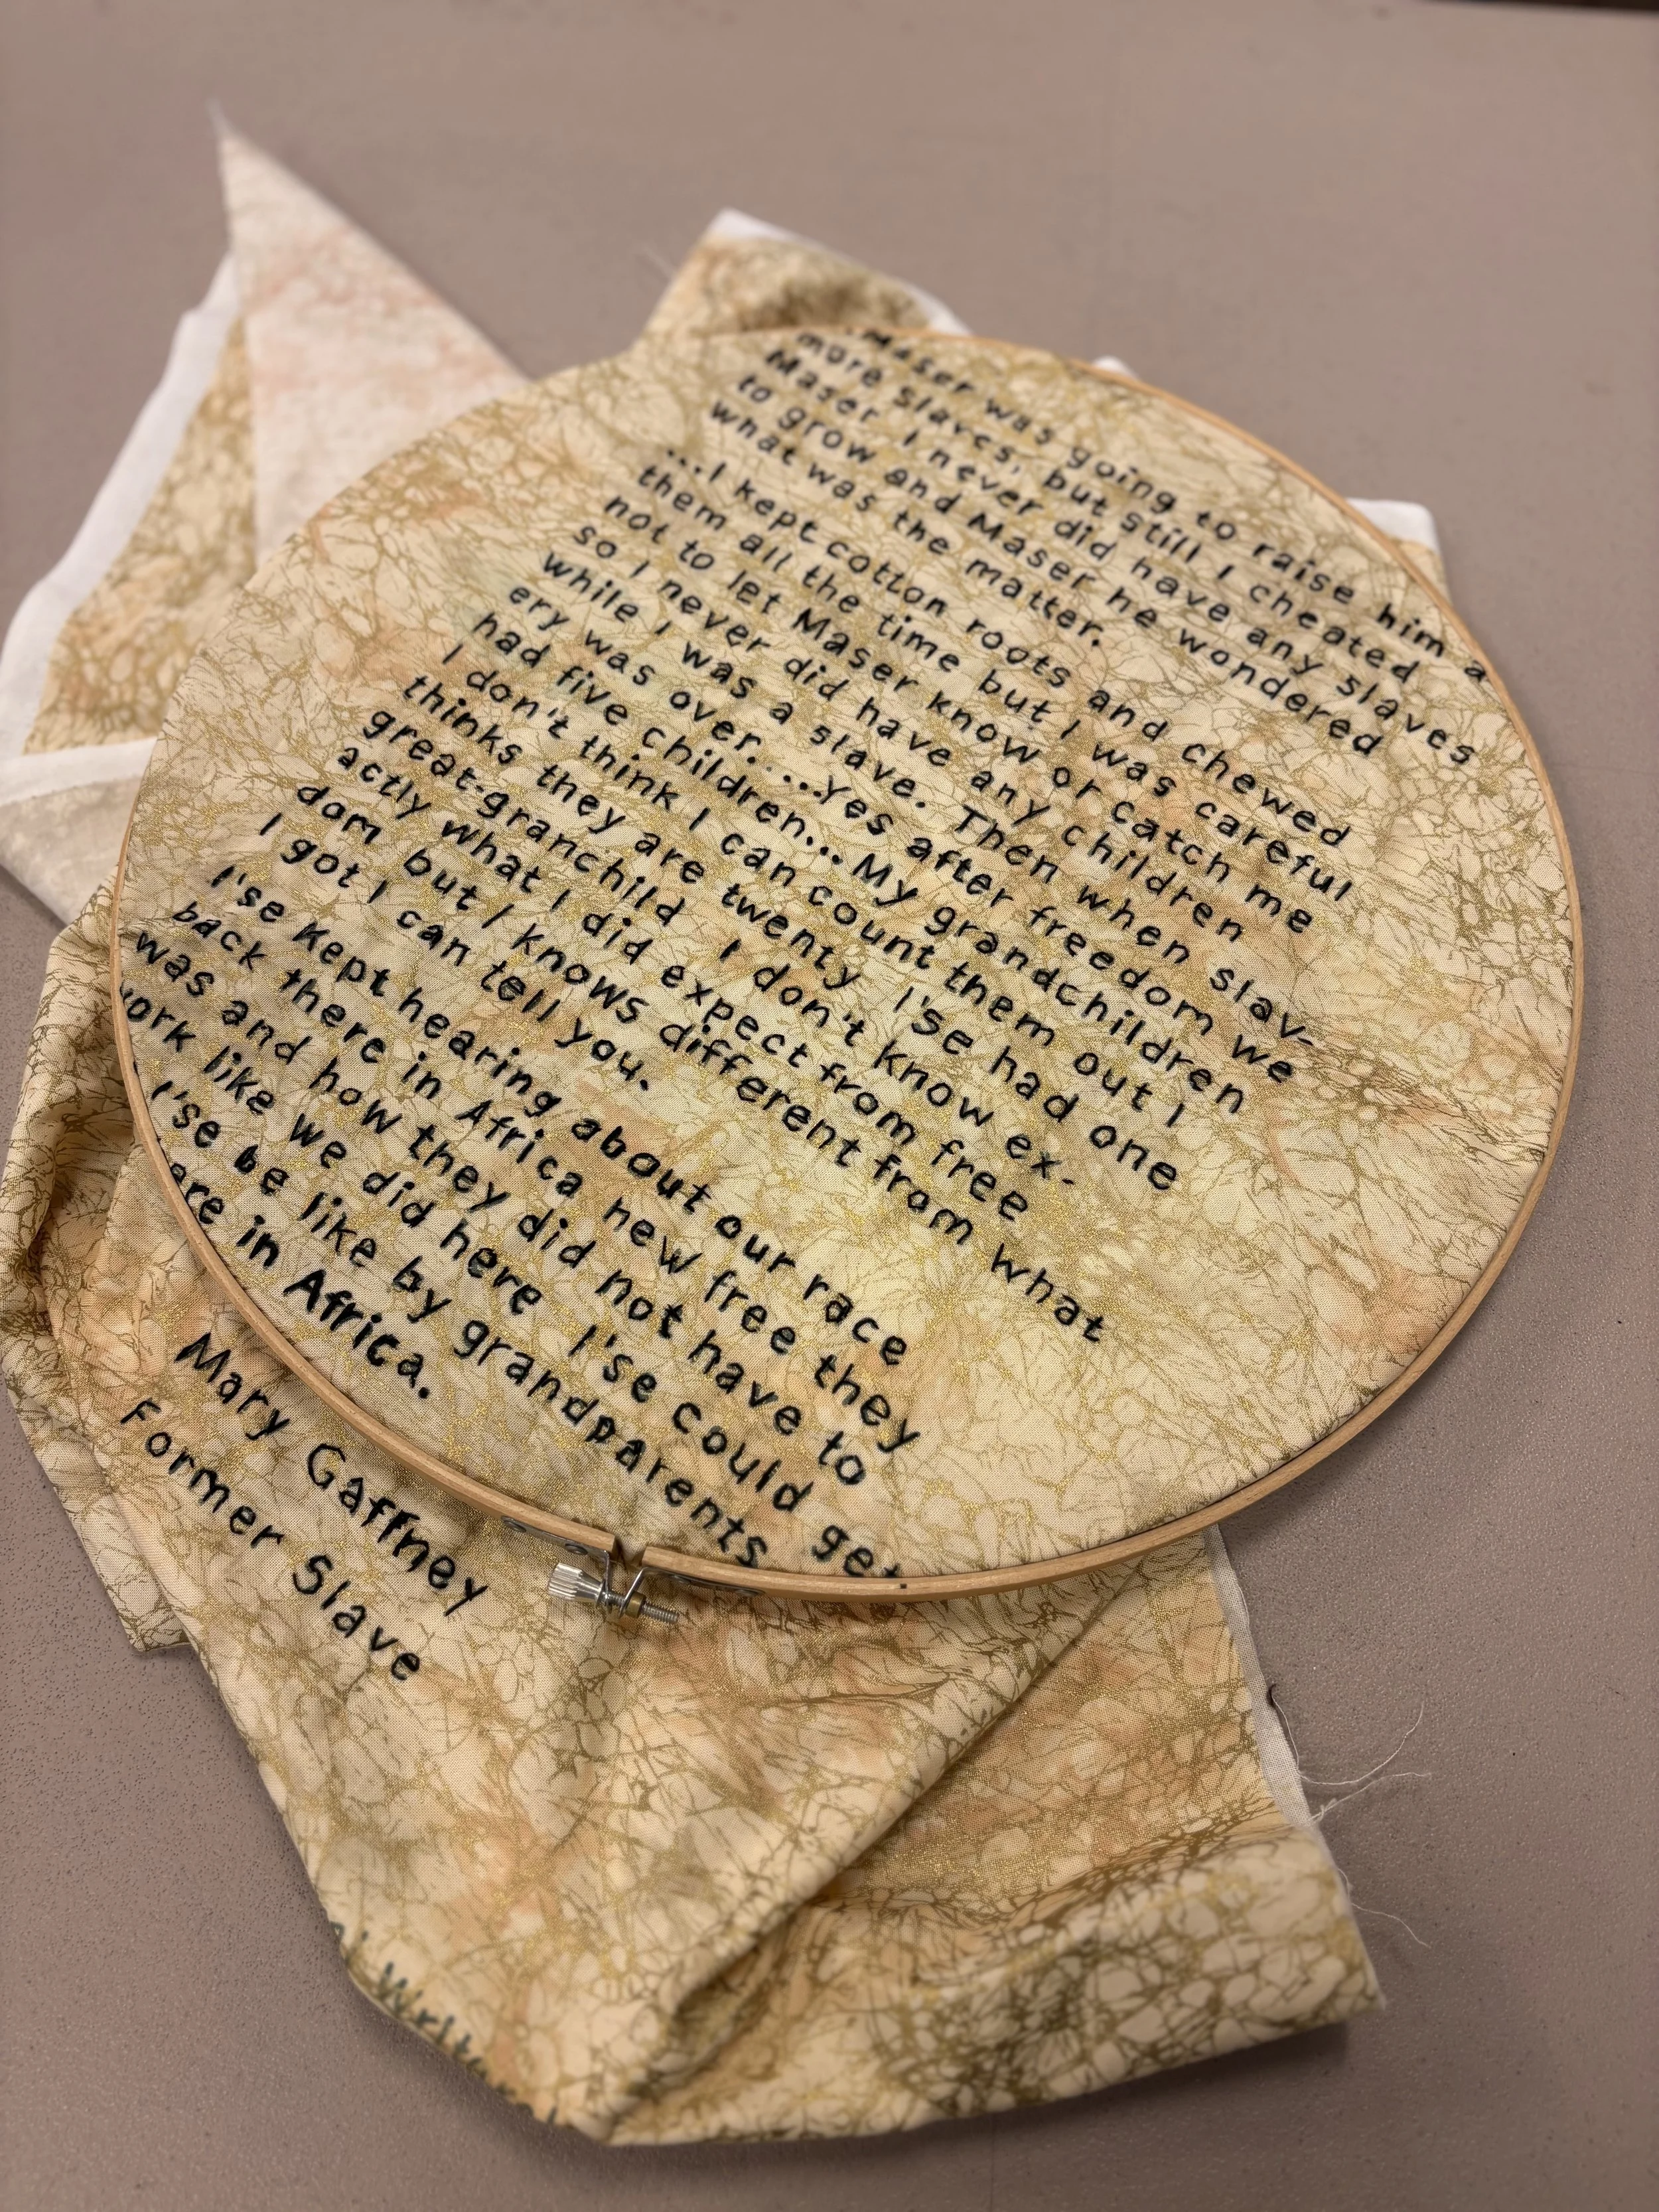 Maser was going to raise him a
more slaves, but still I cheated
Maser I never did have any slaves
to grow and Maser he wondered
what was the matter.
...I kept cotton roots and chewed
them all the time but I was careful
not to let Maser know or catch me
so I never did have any children
while I was a slave. Then when slav-
ery was over. ...Yes after freedom we
had five children... My grandchildren
I don't think I can count them out I
thinks they are twenty I'se had one
great-granchild I don't know ex-
actly what I did expect from free
dom but I knows different from what
I got I can tell you.
I'se Kept hearing about our race
back there in Africa new free they
was and how they did not have to
work like we did here I'se could get
I'se be like by grandparents
in Africa.
Mary Gaffney
Former Slave